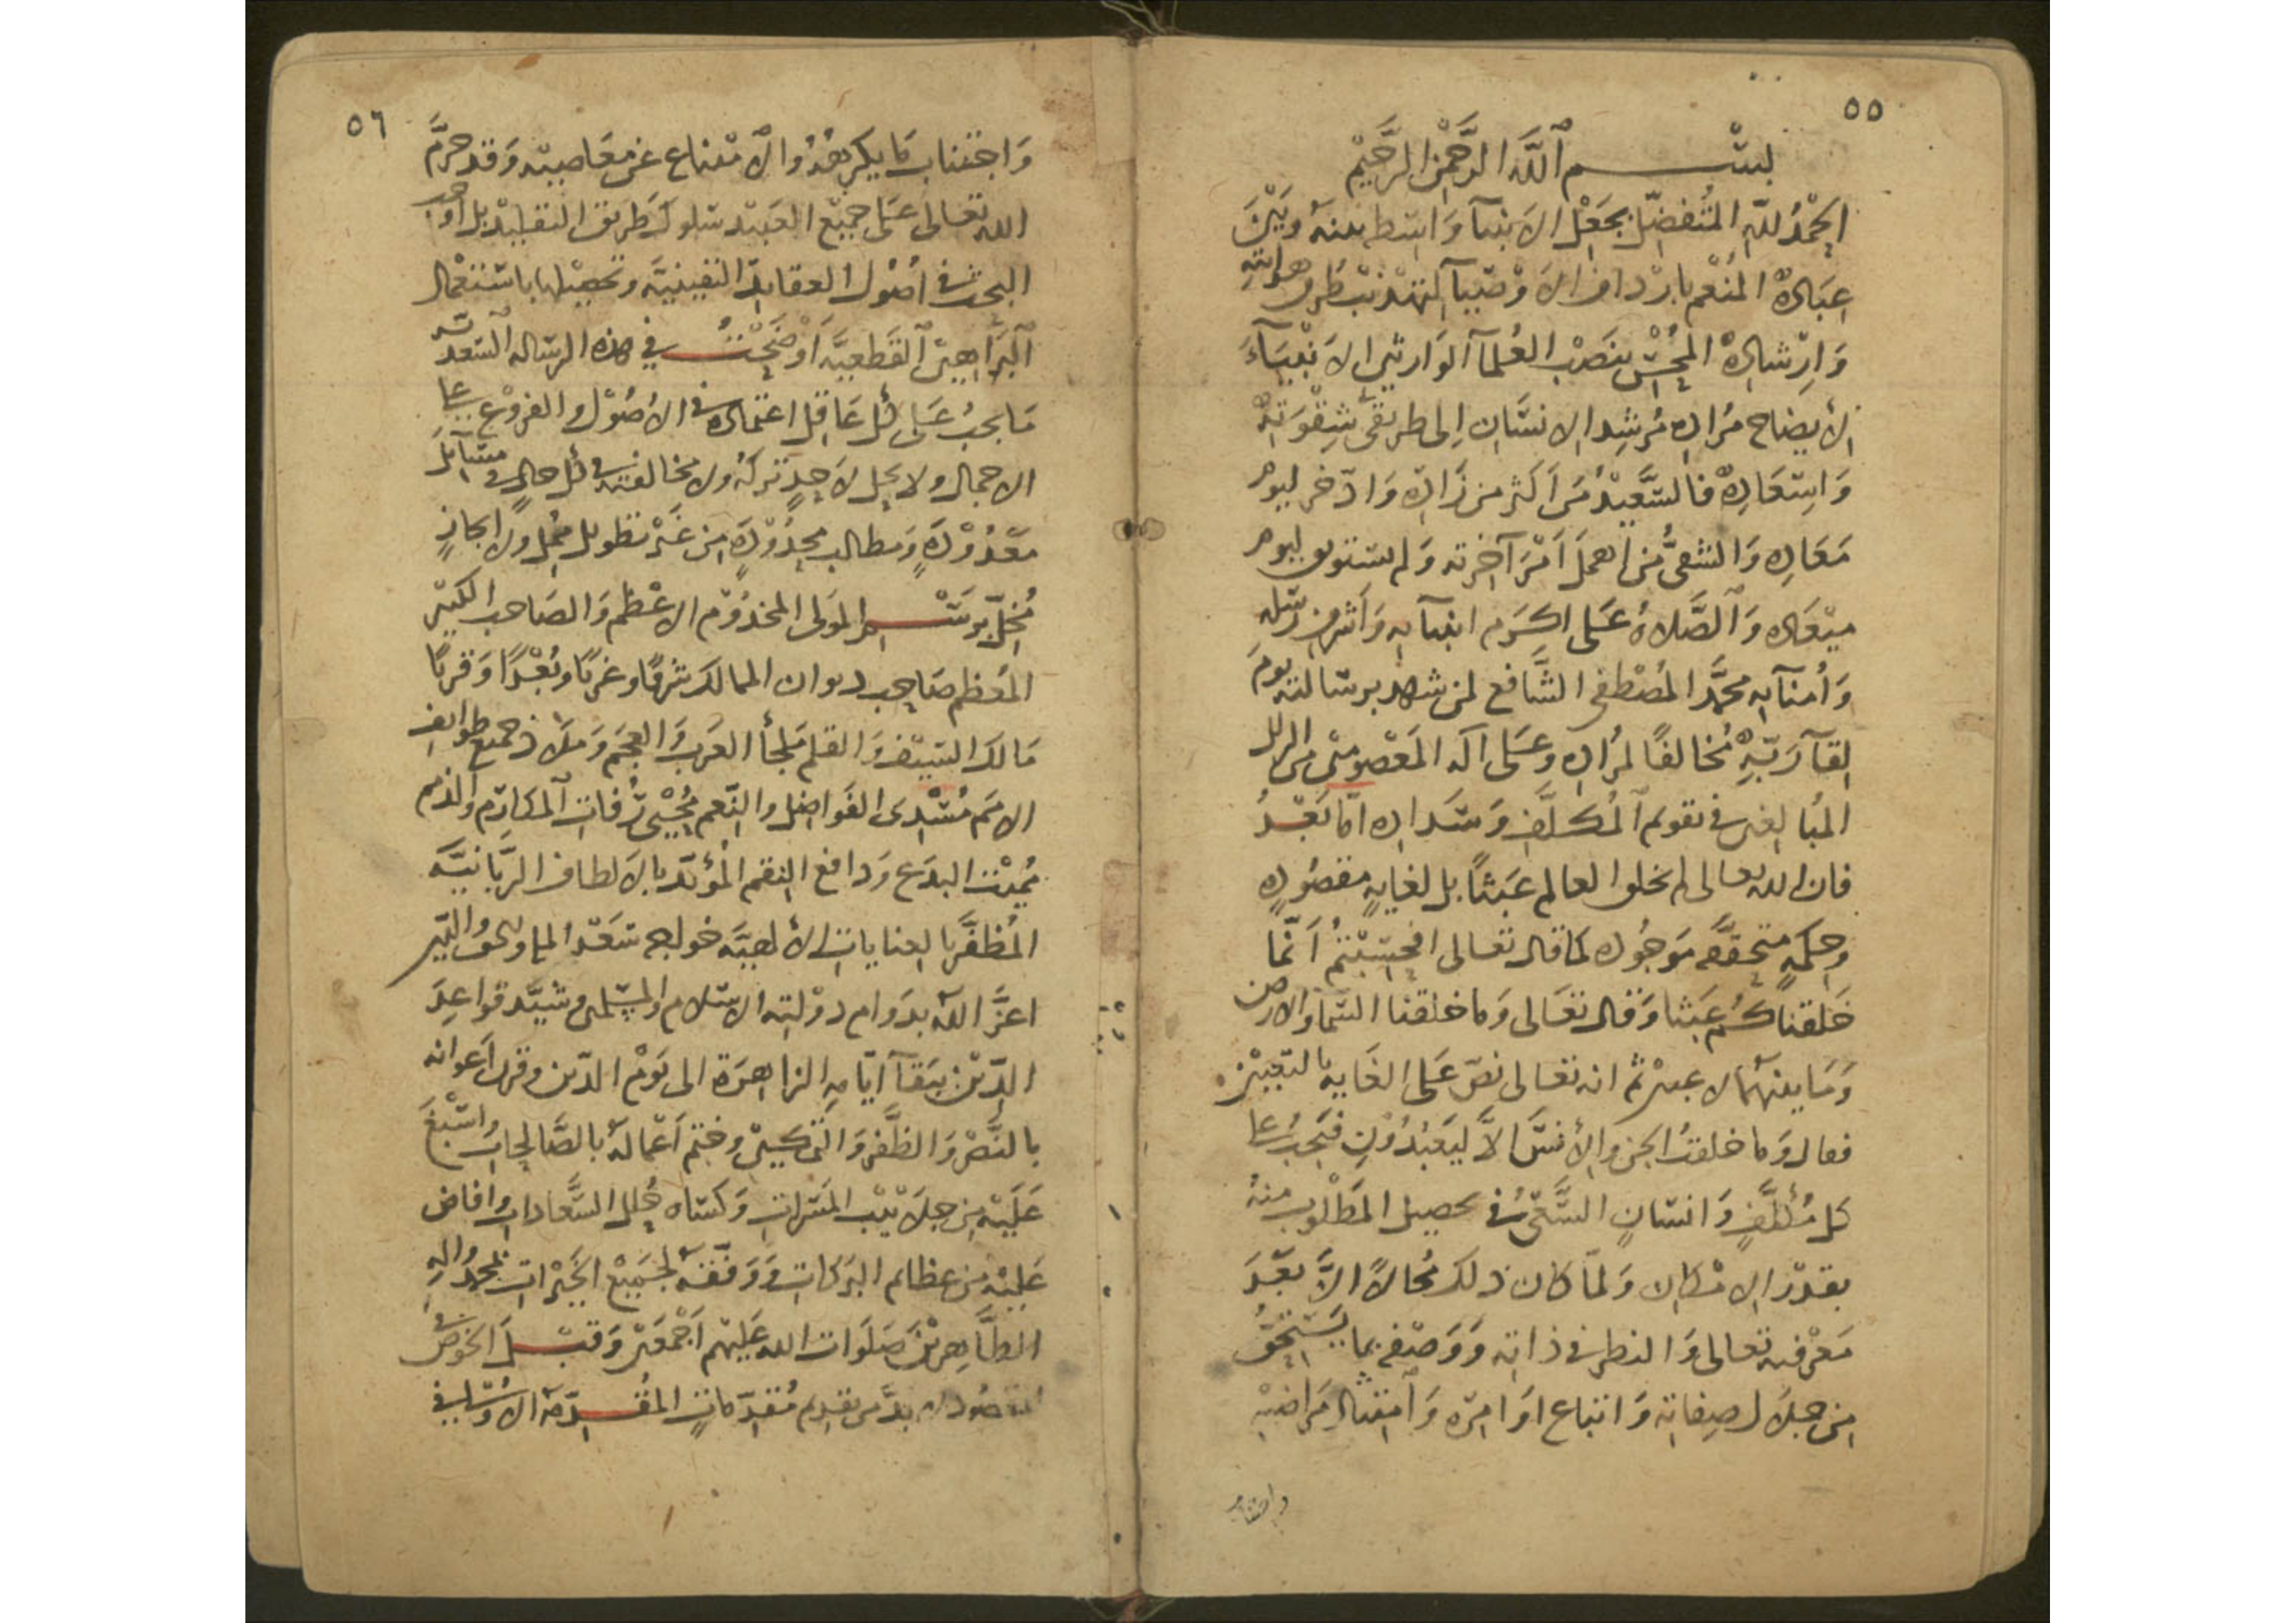 ٥٥
بسم الله الرحمن الرحيم
الحمد لله المتفضل بجعل الانبيآ واسطا بينه وبين
عباده المنعم بارداف الاوصيآ لتهذيب طرق هدايته
وارشاده المحسن بنصب العلمآ الوارثين الانبيآء
لأيضاح مراده مرشد الانسان الى طريقي شقوته
واسعاده فالسعيد من اكثر من زاده وادخر ليوم
معاده والشقي من اهمل امر آخرته ولم يستوف ليوم
ميعاده والصلاة على اكرم انبيآيه واشرف رسله
وأمنآيه محمد المصطفى الشافع لمن شهد برسالته يوم
لقآ ربه مخالفا لمراده وعلى اله المعصومين من الزلل
المبالغين في تقويم المكلف وسداده اما بعد
فان الله تعالى لم يخلق العالم عبثا بل لغاية مقصوده
وحكمة متحققه موجوده كما قال تعالى افحسبتم أنما
خلقناكم عبثا وقال تعالى وما خلقنا السما والارض
وما بينهما لاعبين ثم انه تعالى نص على الغايه بالتعيين
فقال وما خلقت الجن والأنس الا ليعبدون فيجب على
كل مكلف وانسان السعي في تحصيل المطلوب منه
بقدر الامكان ولما كان ذلك محالا الا بعد
معرفته تعالى والنظر في ذاته ووصفه بما يستحق
من جلال صفاته واتباع اوامره وامتثال مراضيه
واجتناب
٥٦
واجتناب ما يكرهه والامتناع عن معاصيه وقد حرم
الله تعالى على جميع العبيد سلوك طريق التقليد بل اوجب
البحث في اصول العقايد اليقينية وتحصيلها باستعمال
البراهين القطعية اوضحت في هذه الرساله السعديه
ما يجب على كل عاقل اعتماده في الاصول والفروع على
الاجمال ولا يحل لاحد تركه ولا مخالفته في كل حال في مسآيل
معدودة ومطالب محدودة من غير تطويل ممل ولا ايجاز
مخل برسم المولى المخدوم الاعظم والصاحب الكبير
المعظم صاحب ديوان الممالك شرقا وغربا وبعدا وقربا
مالك السيف والقلم ملجأ العرب والعجم وملاذ جميع طوايف
الامم مسدى الفواضل والنعم محيى رفات المكارم والذمم
مميت البدع ودافع النقم المؤيد بالالطاف الربانية
المظفر بالعنايات الألهية خواجه سعد الملة والحق والدين
اعز الله بدوام دولته الاسلام والمسلمين وشيد قواعد
الدين ببقآ ايامه الزاهرة الى يوم الدين وقرن اعوانه
بالنصر والظفر والتمكين وختم أعماله بالصالحات واسبغ
عليه من جلابيب المسرات وكساه حلل السعادات وافاض
عليه من عظائم البركات ووفقه لجميع الخيرات بمحمد واله
الطاهرين صلوات الله عليهم اجمعين وقبل الخوض في
المقصود لا بد من تقديم مقدمات المقدمة الاولى في